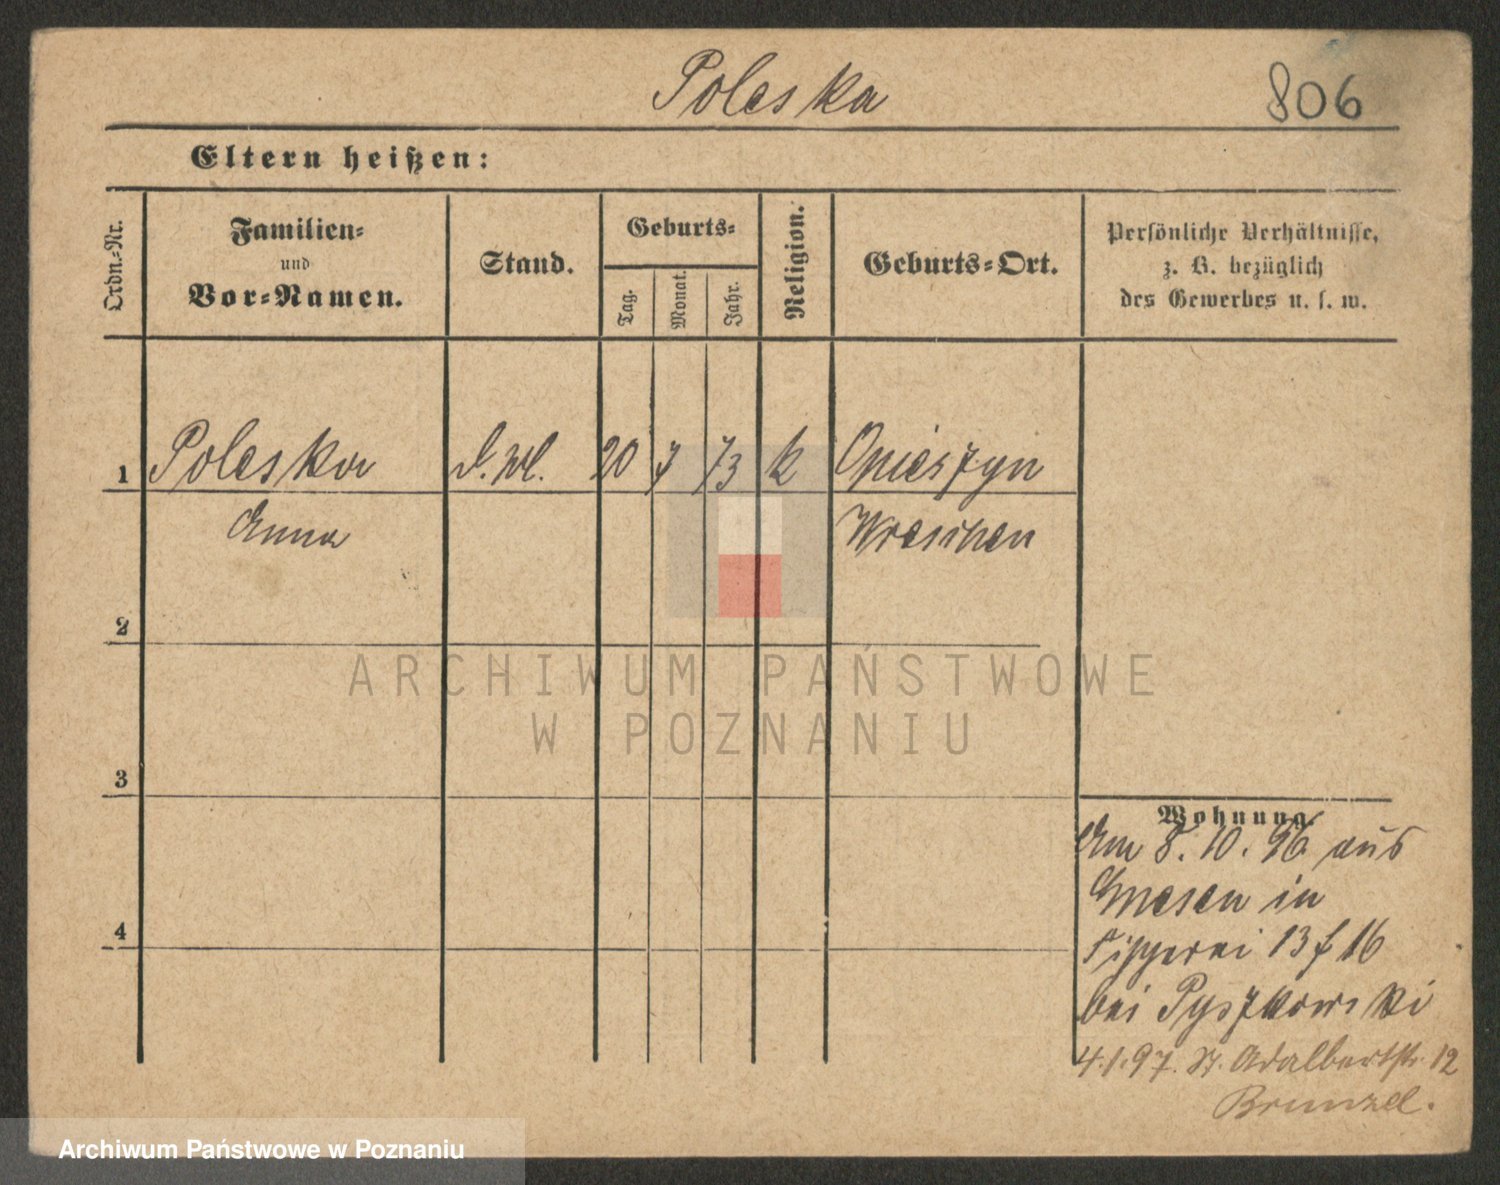 Poleska
806
Eltern heißen:
Ordn.-Nr.
Familien-
und
Vor-Namen.
Stand.
Geburts-
Tag.
Monat.
Jahr.
Religion.
Geburts-Ort.
Persönliche Verhältnisse,
z. B. bezüglich
des Gewerbes u. s. w.
1 Poleska 20 7 73 k Opieszyn
Anna Wreschen
2
3
4
Wohnung.
Am 8. 10. 96 aus
Gnesen in
Fischerei 13 f 16
bei Pyszkowski
4.1.97. St. Adalbertstr. 12
ARCHIWUM PAŃSTWOWE
W POZNANIU
Archiwum Państwowe w Poznaniu